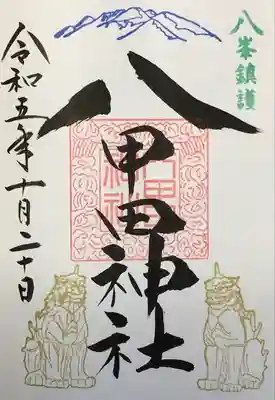 八峯鎮護
八甲田神社
令和五年十月二十日